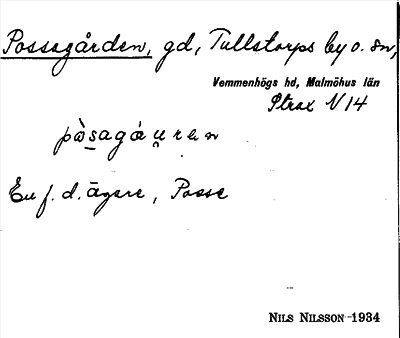 Possagården, gd, Tullstorps by o. sn,
Vemmenhögs hd, Malmöhus län
Strax N 14
pòs̠agáu̯ren
En f. d. ägare, Posse
NILS NILSSON 1934